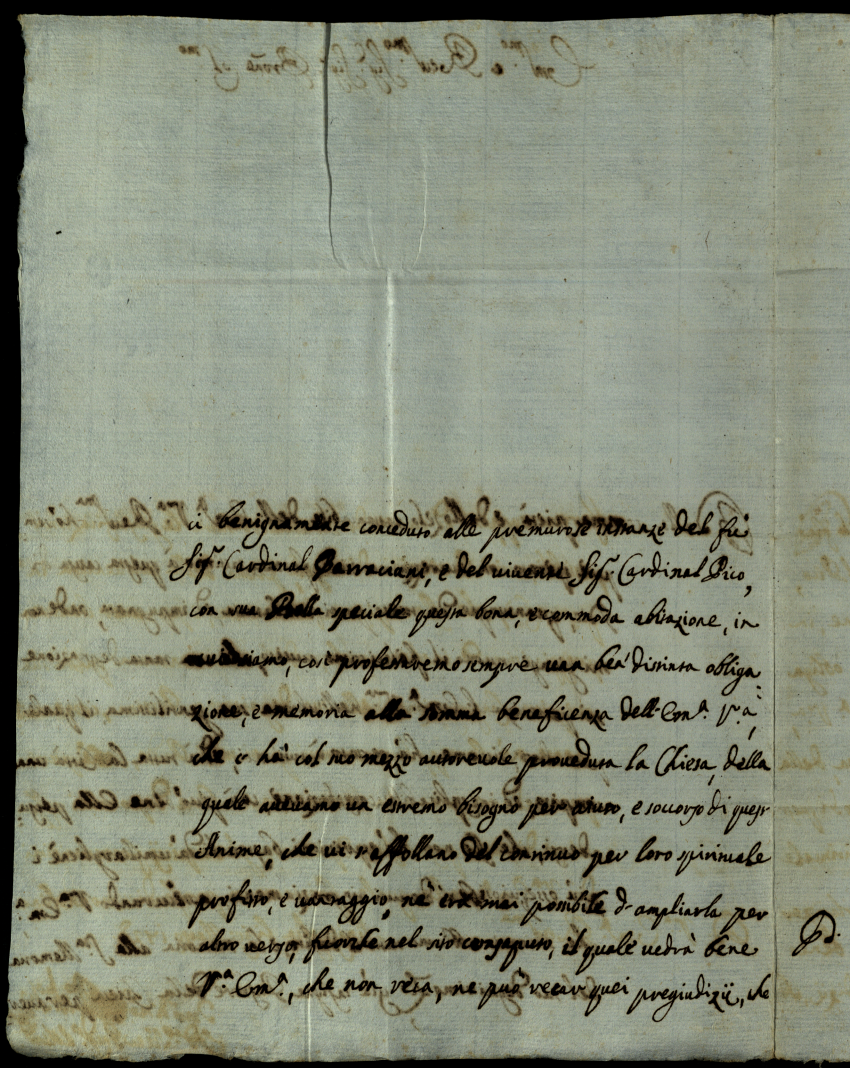 ci benignamente conceduto alle premurose instanze del fù
Sig.r Cardinal Barraciani, e del vivente Sig.r Cardinal Pico,
con sua Bolla speciale questa bona, e commoda abitazione, in
così professaremo sempre una ben distinta obliga
zione, e memoria alla somma beneficenza dell' Em.a V.a,
che ci hà col suo mezzo autorevole proveduta la Chiesa, della
quale avevamo un estremo bisogno per aiuto, e soccorso di quest'
Anime, che vi s'affollano del continuo per loro spirituale
profitto, e vantaggio, nè era mai possibile d'ampliarla per
altro verso, fuorche nel sito consaputo, il quale vedrà bene
V.a Em.a, che non reca, ne può recar quei pregiudizij, che